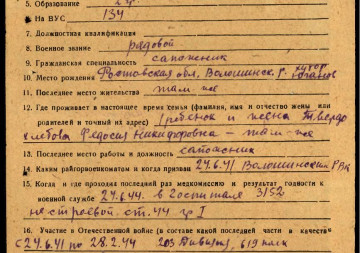 5. Образование 2 гр.
6. На ВУС 134
7. Должностная квалификация
8. Военное звание рядовой
9. Гражданская специальность сапожник
10. Место рождения Ростовская обл. Волошинск. р. хутор
11. Последнее место жительства там-же
12. Где проживает в настоящее время семья (фамилия, имя и отчество жены или
родителей и точный их адрес) 1 ребенок и жена Твердо
хлебова Федосия Никифоровна — там-же
13. Последнее место работы и должность сапожник
14. Каким райгорвоенкоматом и когда призван 24.6.41 Волошинским РВК
15. Когда и где проходил последний раз медкомиссию и результат годности к
военной службе 24.6.44. в госпитале 3152
нестроевой. ст. 44 гр I
16. Участие в Отечественной войне (в составе какой последней части и в качестве
с 24.6.41 по 28.2.44 203 дивизия, 619 полк